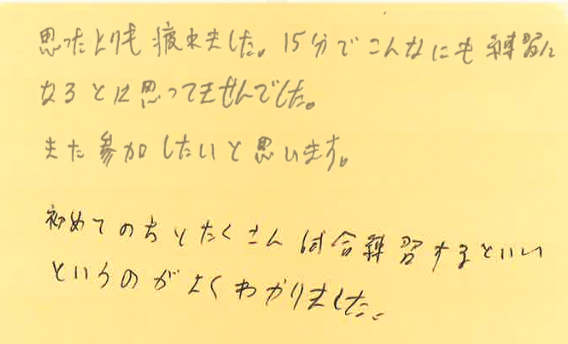 思ったよりも疲れました。15分でこんなにも練習に
なるとは思ってませんでした。
また参加したいと思います。
初めてのちとたくさん試合練習するといい
というのがよくわかりました。